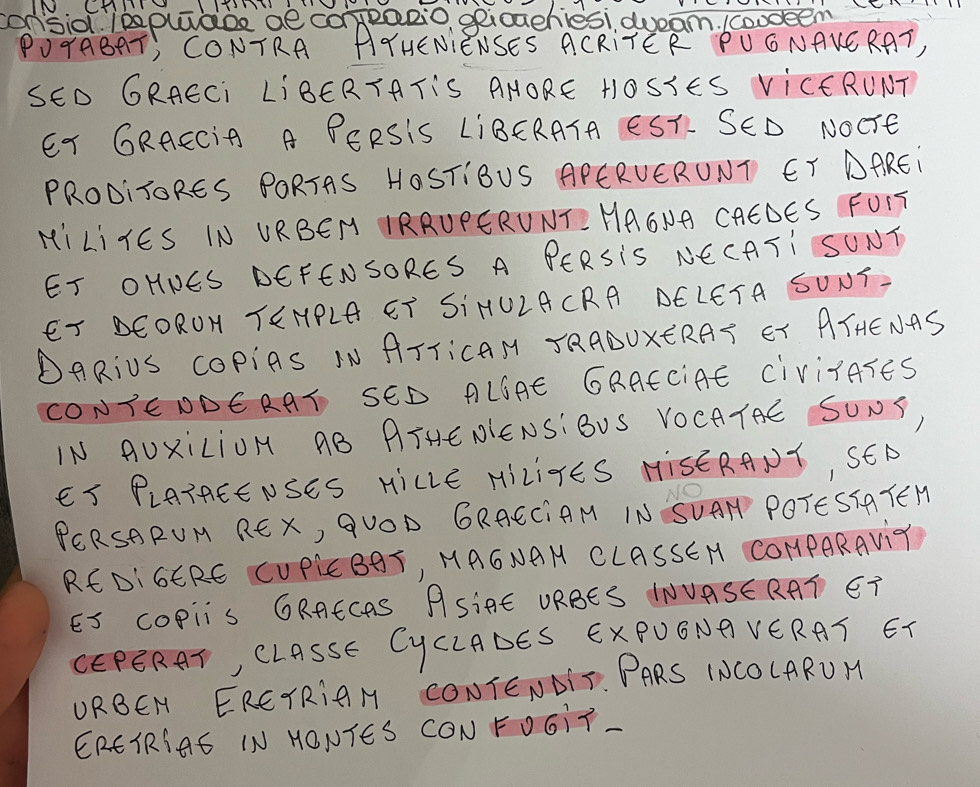 PUTABAT, CONTRA ATHENIENSES ACRITER PUGNAVERAT,
SED GRAECI LIBERTATIS AMORE HOSTES VICERUNT
ET GRAECIA A PERSIS LIBERATA EST. SED NOCTE
PRODITORES PORTAS HOSTIBUS APERUERUNT ET DAREI
MILITES IN URBEM IRRUPERUNT. MAGNA CAEDES FUIT
ET OMNES DEFENSORES A PERSIS NECATI SUNT
ET DEORUM TEMPLA ET SIMULACRA DELETA SUNT.
DARIUS COPIAS IN ATTICAM TRADUXERAT ET ATHENAS
CONTENDERAT SED ALIAE GRAECIAE CIVITATES
IN AUXILIUM AB ATHENIENSIBUS VOCATAE SUNT,
ET PLATAEENSES MILLE MILITES MISERANT, SED
NO
PERSARUM REX, QUOD GRAECIAM IN SUAM POTESTATEM
REDIGERE CUPIEBAT, MAGNAM CLASSEM COMPARAVIT
ET COPIIS GRAECAS ASIAE URBES INVASERAT ET
CEPERAT, CLASSE CYCLADES EXPUGNAVERAT ET
URBEM ERETRIAM CONTENDIT. PARS INCOLARUM
ERETRIAE IN MONTES CONFUGIT.